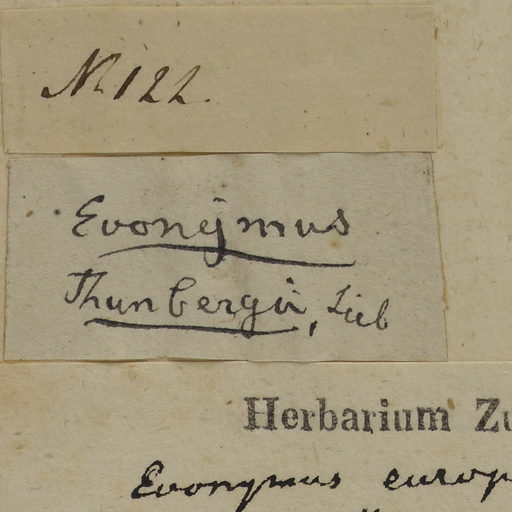 No 122.
Evonymus
Thunbergii, Sieb
Herbarium Zu
Evonymus europ